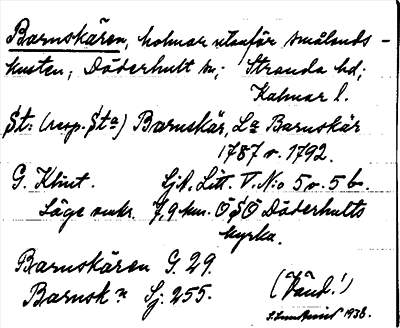 Barnskären, holmar utanför smålands-
kusten; Döderhult sn; Stranda hd;
Kalmar l.
St: (resp. Sta) Barnskär, La Barnskär
1787 o. 1792.
G. Klint. Sj.A. Litt. V. N:o 5 o. 5 b.
Läge omkr. 7,9 km. ÖSÖ Döderhults
kyrka.
Barnskären G. 29.
Barnsk n Sj. 255.
(Vänd!)
1938.